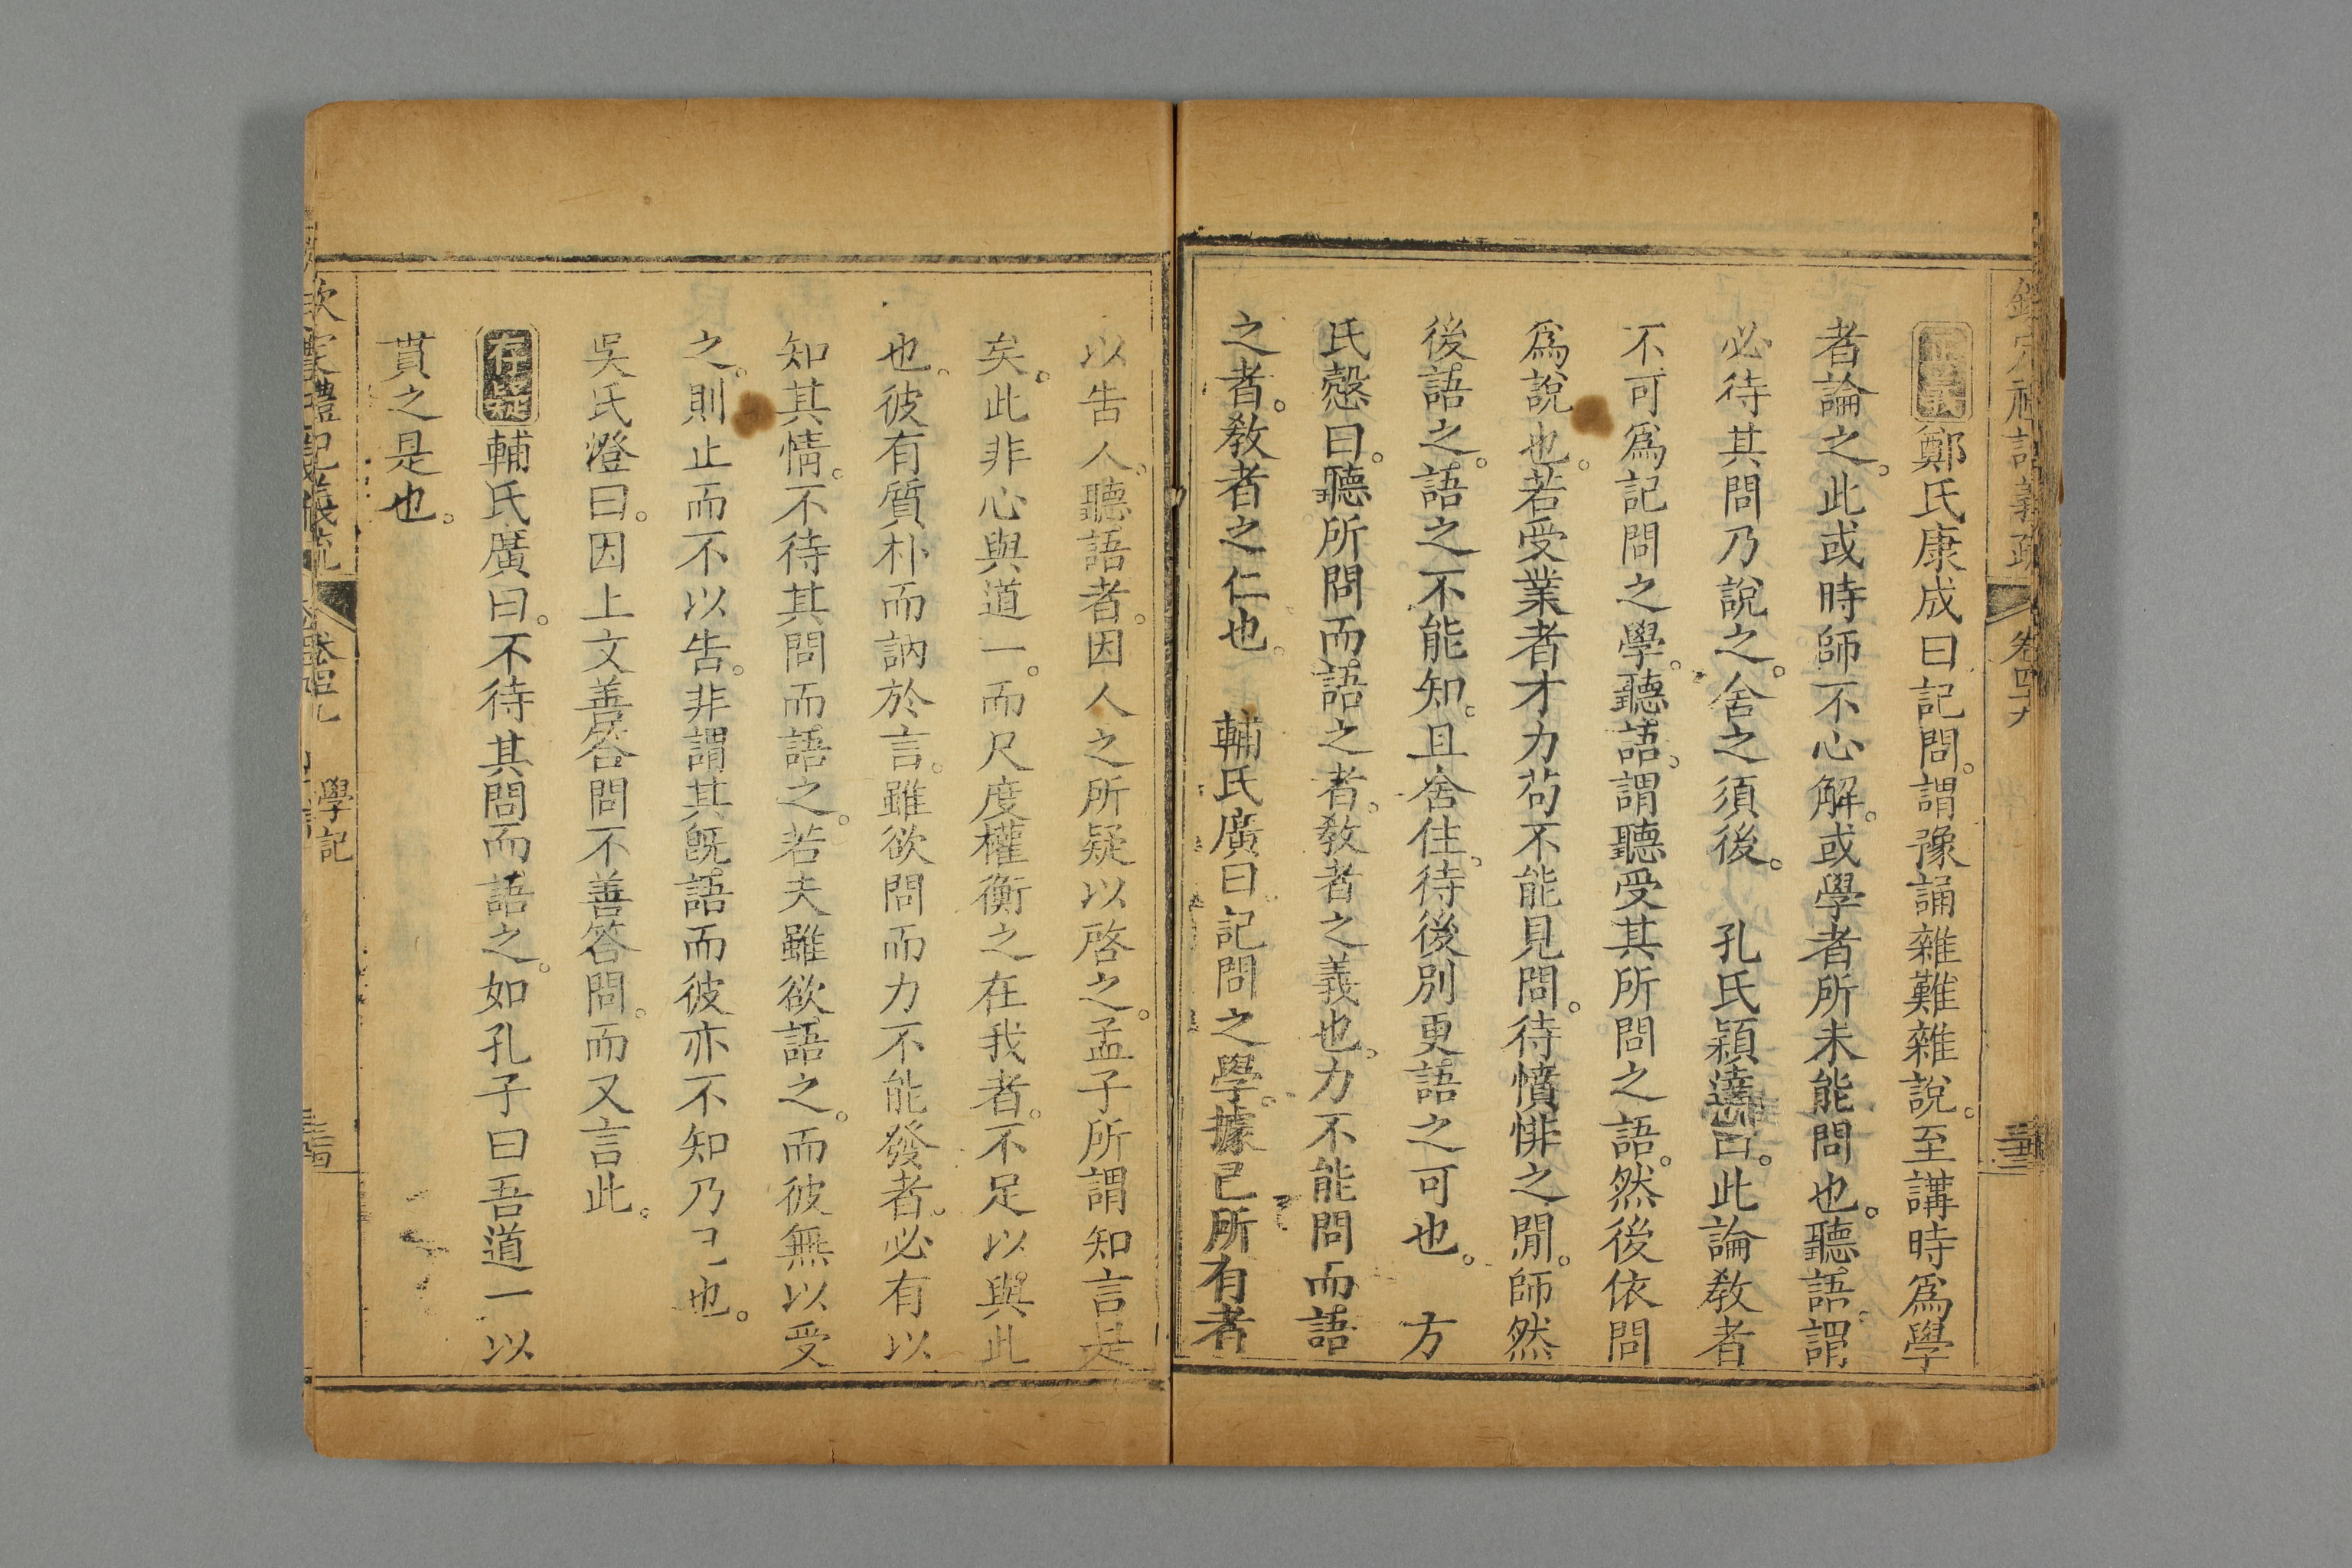 正義鄭氏康成曰記問。謂豫誦雜難雜說。至講時爲學
者論之。此或時師不心解。或學者所未能問也。聽語。謂
必待其問乃說之。舍之須後。 孔氏穎達曰。此論敎者
不可爲記問之學。聽語。謂聽受其所問之語。然後依問
爲說也。若受業者才力苟不能見問。待憤悱之閒。師然
後語之。語之不能知。且舍住。待後別更語之可也。 方
氏慤曰。聽所問而語之者。敎者之義也。力不能問而語
之者。敎者之仁也。 輔氏廣曰。記問之學。據已所有者
以告人。聽語者。因人之所疑以啓之。孟子所謂知言是
矣。此非心與道一。而尺度權衡之在我者。不足以與此
也。彼有質朴而訥於言。雖欲問而力不能發者。必有以
知其情。不待其問而語之。若夫雖欲語之。而彼無以受
之。則止而不以告。非謂其旣語而彼亦不知乃已也。
吳氏澄曰。因上文善答問不善答問。而又言此。
存疑輔氏廣曰。不待其問而語之。如孔子曰吾道一以
貫之是也。
禮記義疏 學記